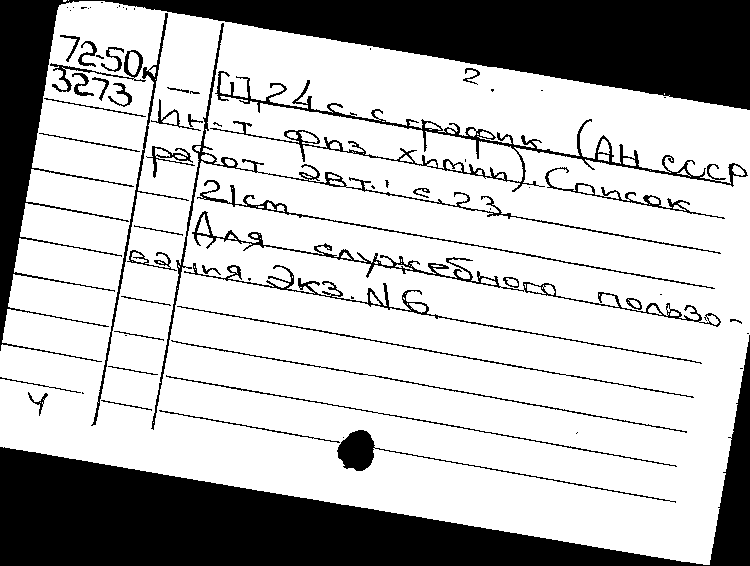 2.
72-50к
3273
— [1], 24 с. с график. (АН СССР
Ин-т физ. химии). Список
работ авт.: с. 23.
21 cm.
Для служебного пользо-
вания. Экз. N 6.
Ч